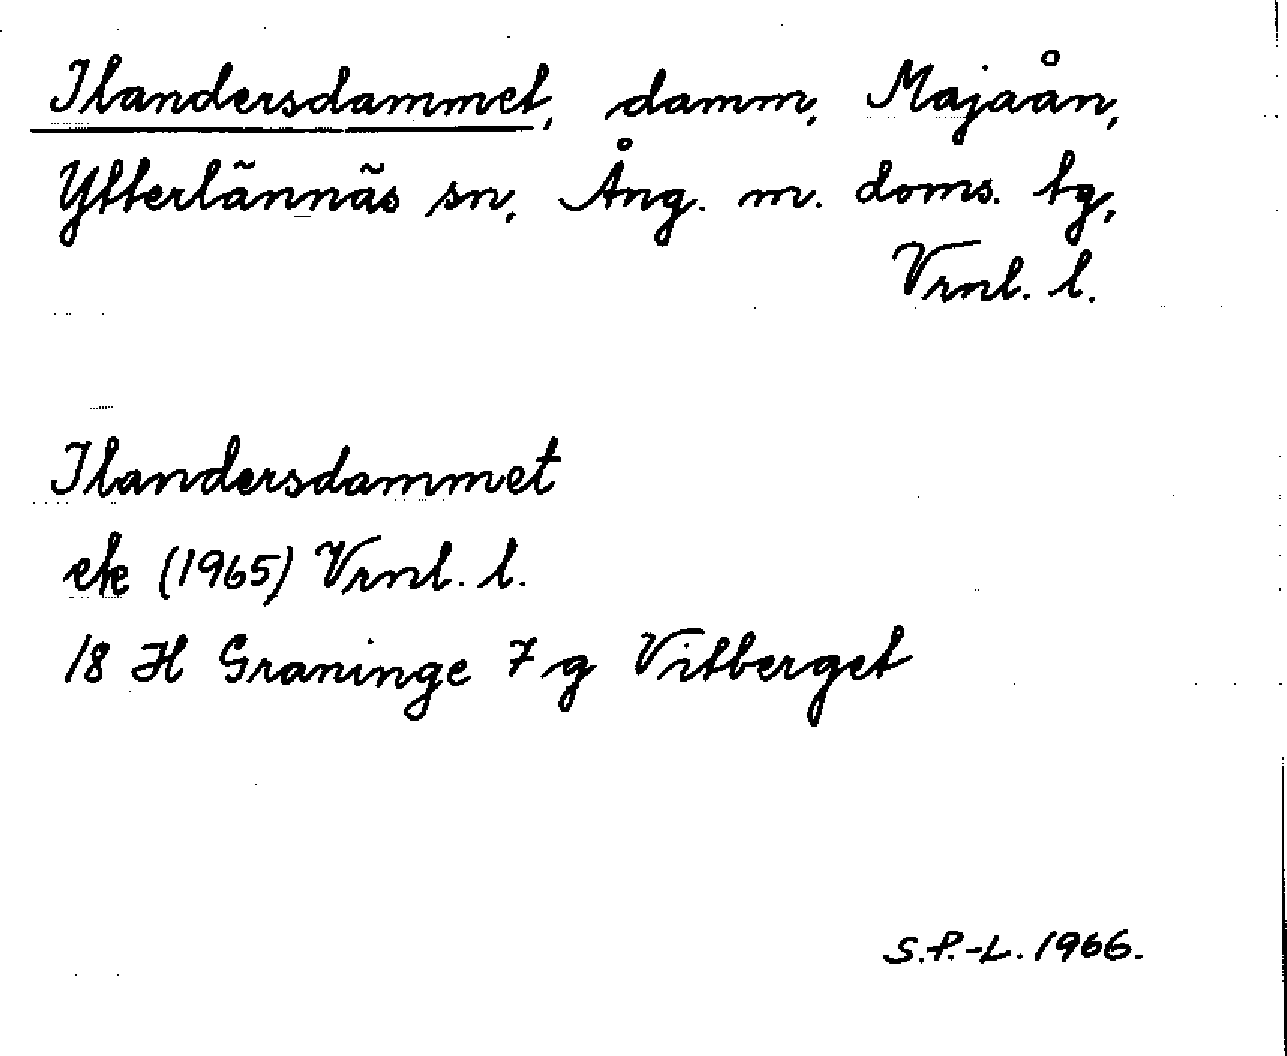 Ilandersdammet, damm, Majaån,
Ytterlännäs sn, Ång. m. doms. tg,
Vrnl. l.
Ilandersdammet
ek (1965) Vrnl. l.
18 H Graninge 7 g Vitberget
S.P.-L. 1966.